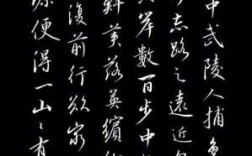 中武陵人捕魚
忘路之遠近
岸數百步中
鮮美落英繽
復前行欲窮
源便得一山々有